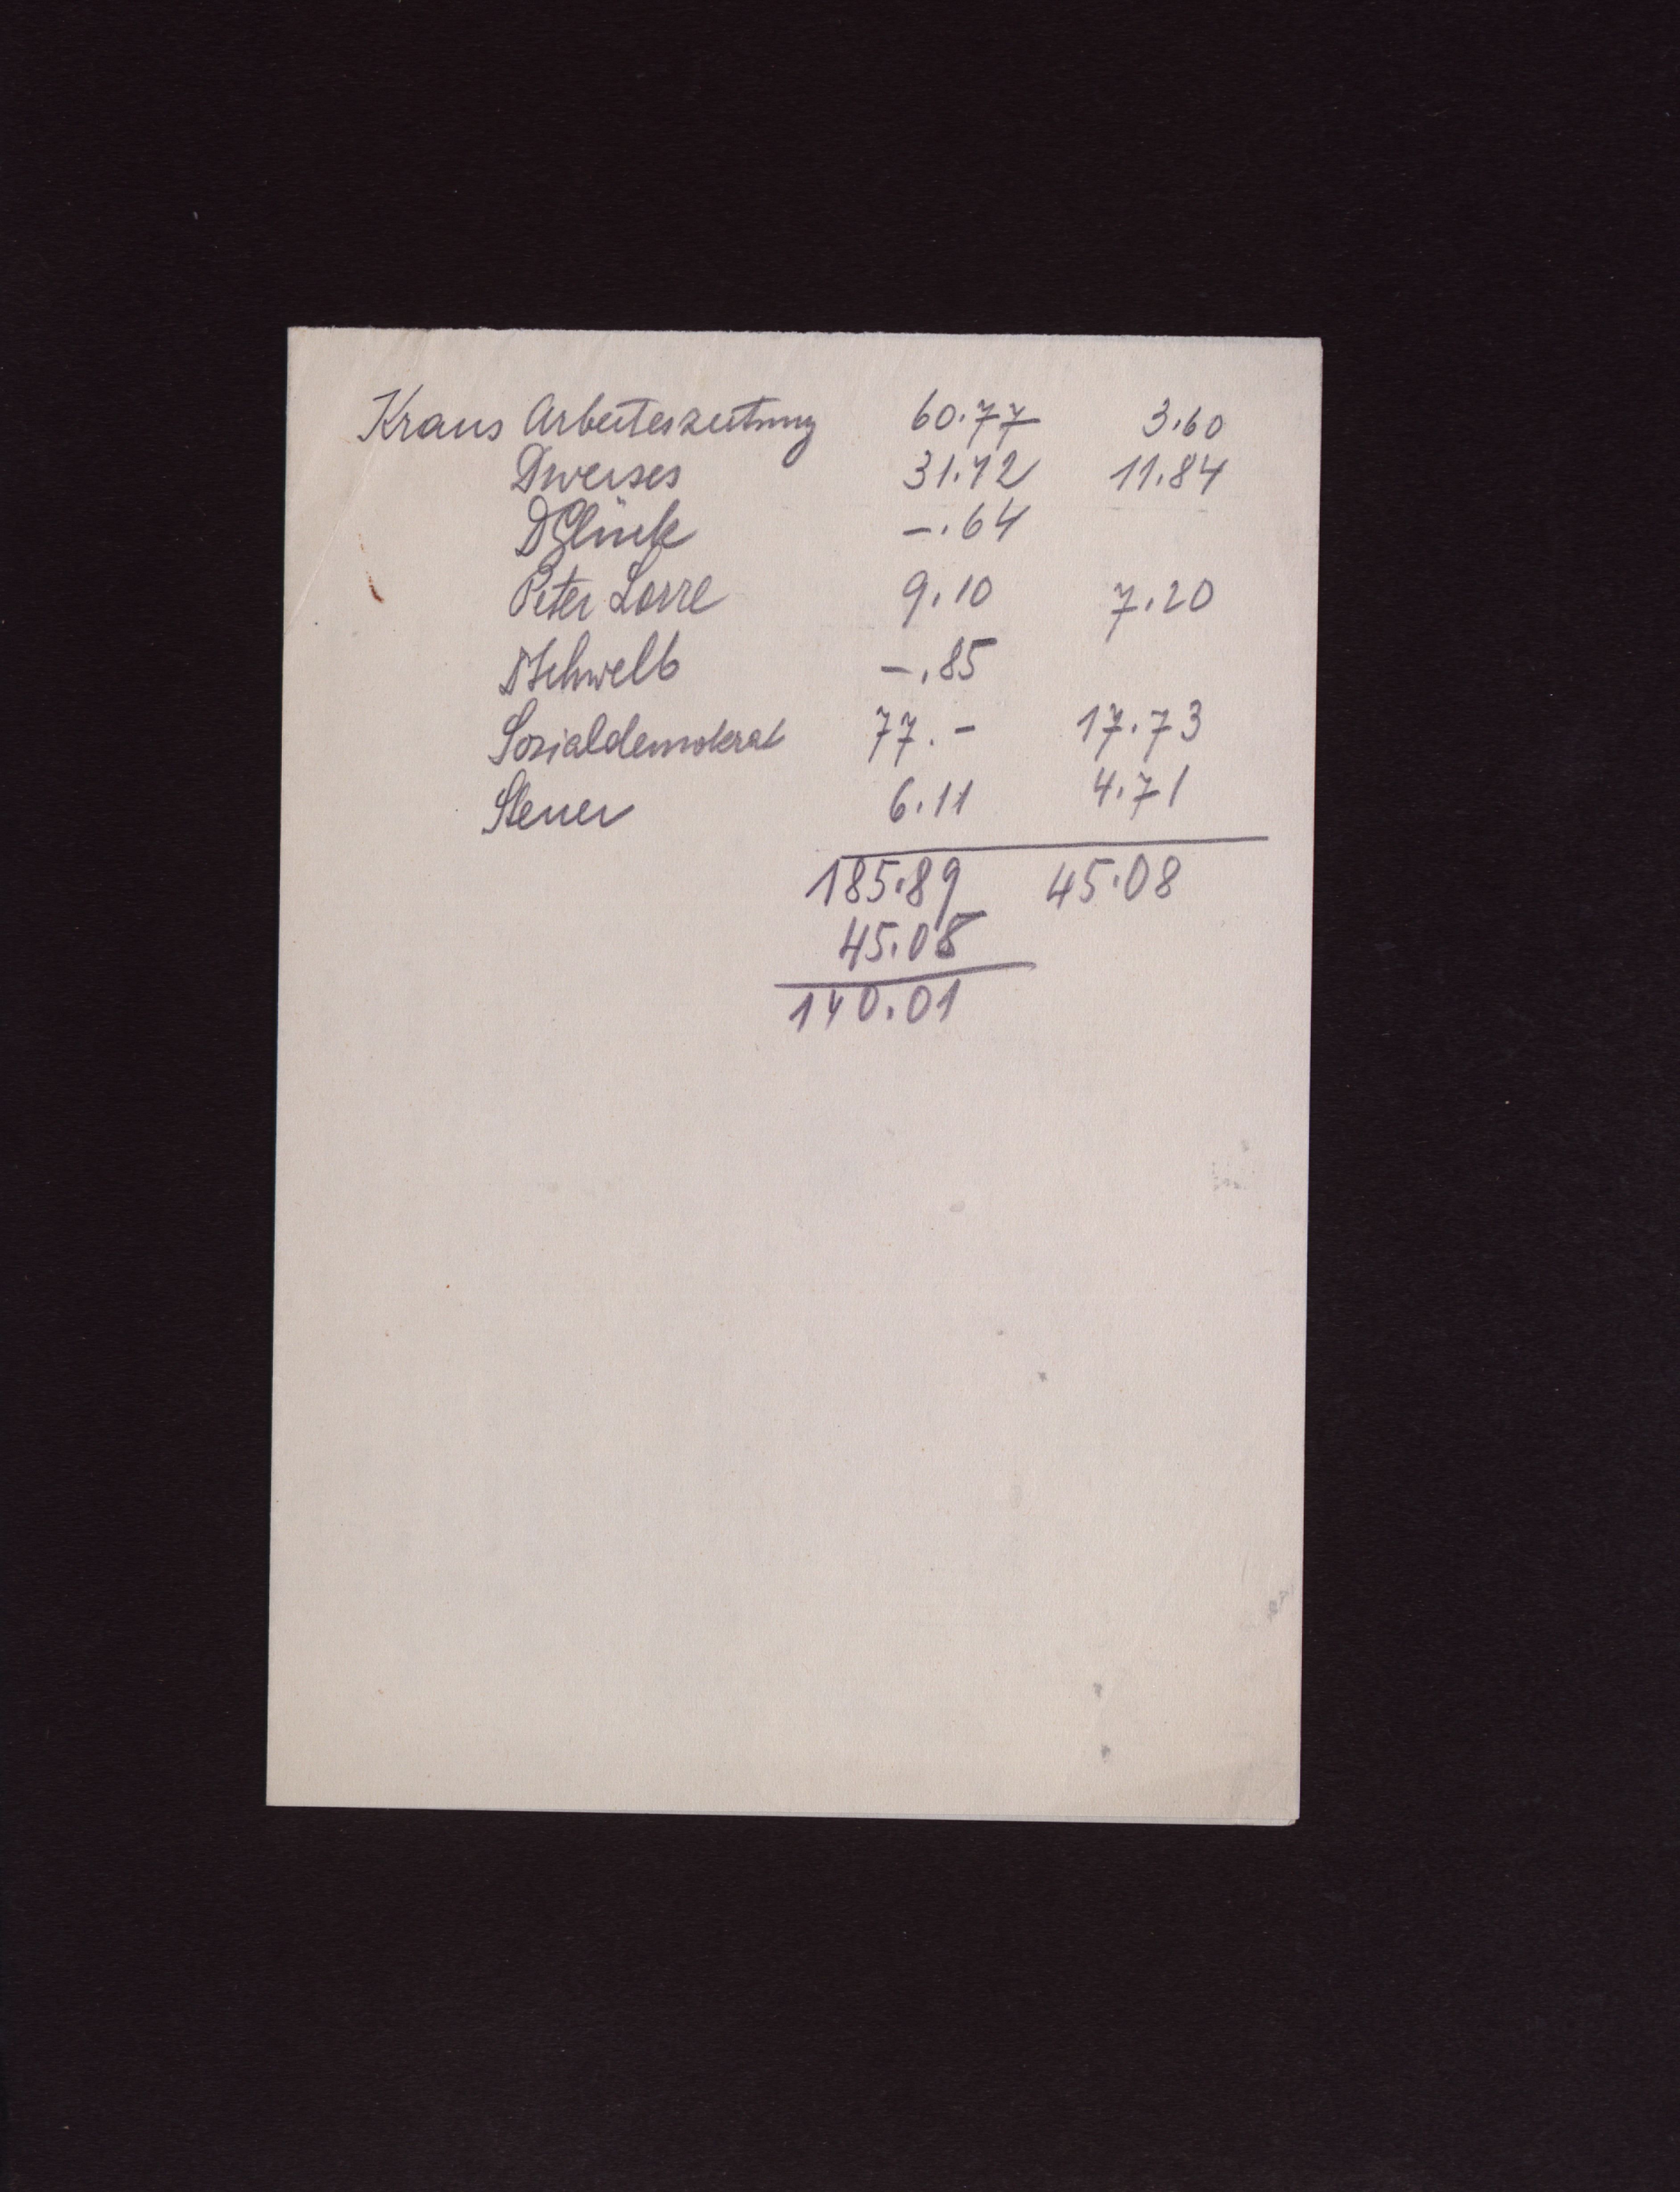 Kraus Arbeiterzeitung 60.77 3.60
Diverses 31.42 11.84
D Glück –.64
Peter Lorre 9.10 7.20
D Schwelb –.85
Sozialdemokrat 77.– 17.73
Steuer 6.11 4.71
185.89 45.08
45.08
140.01